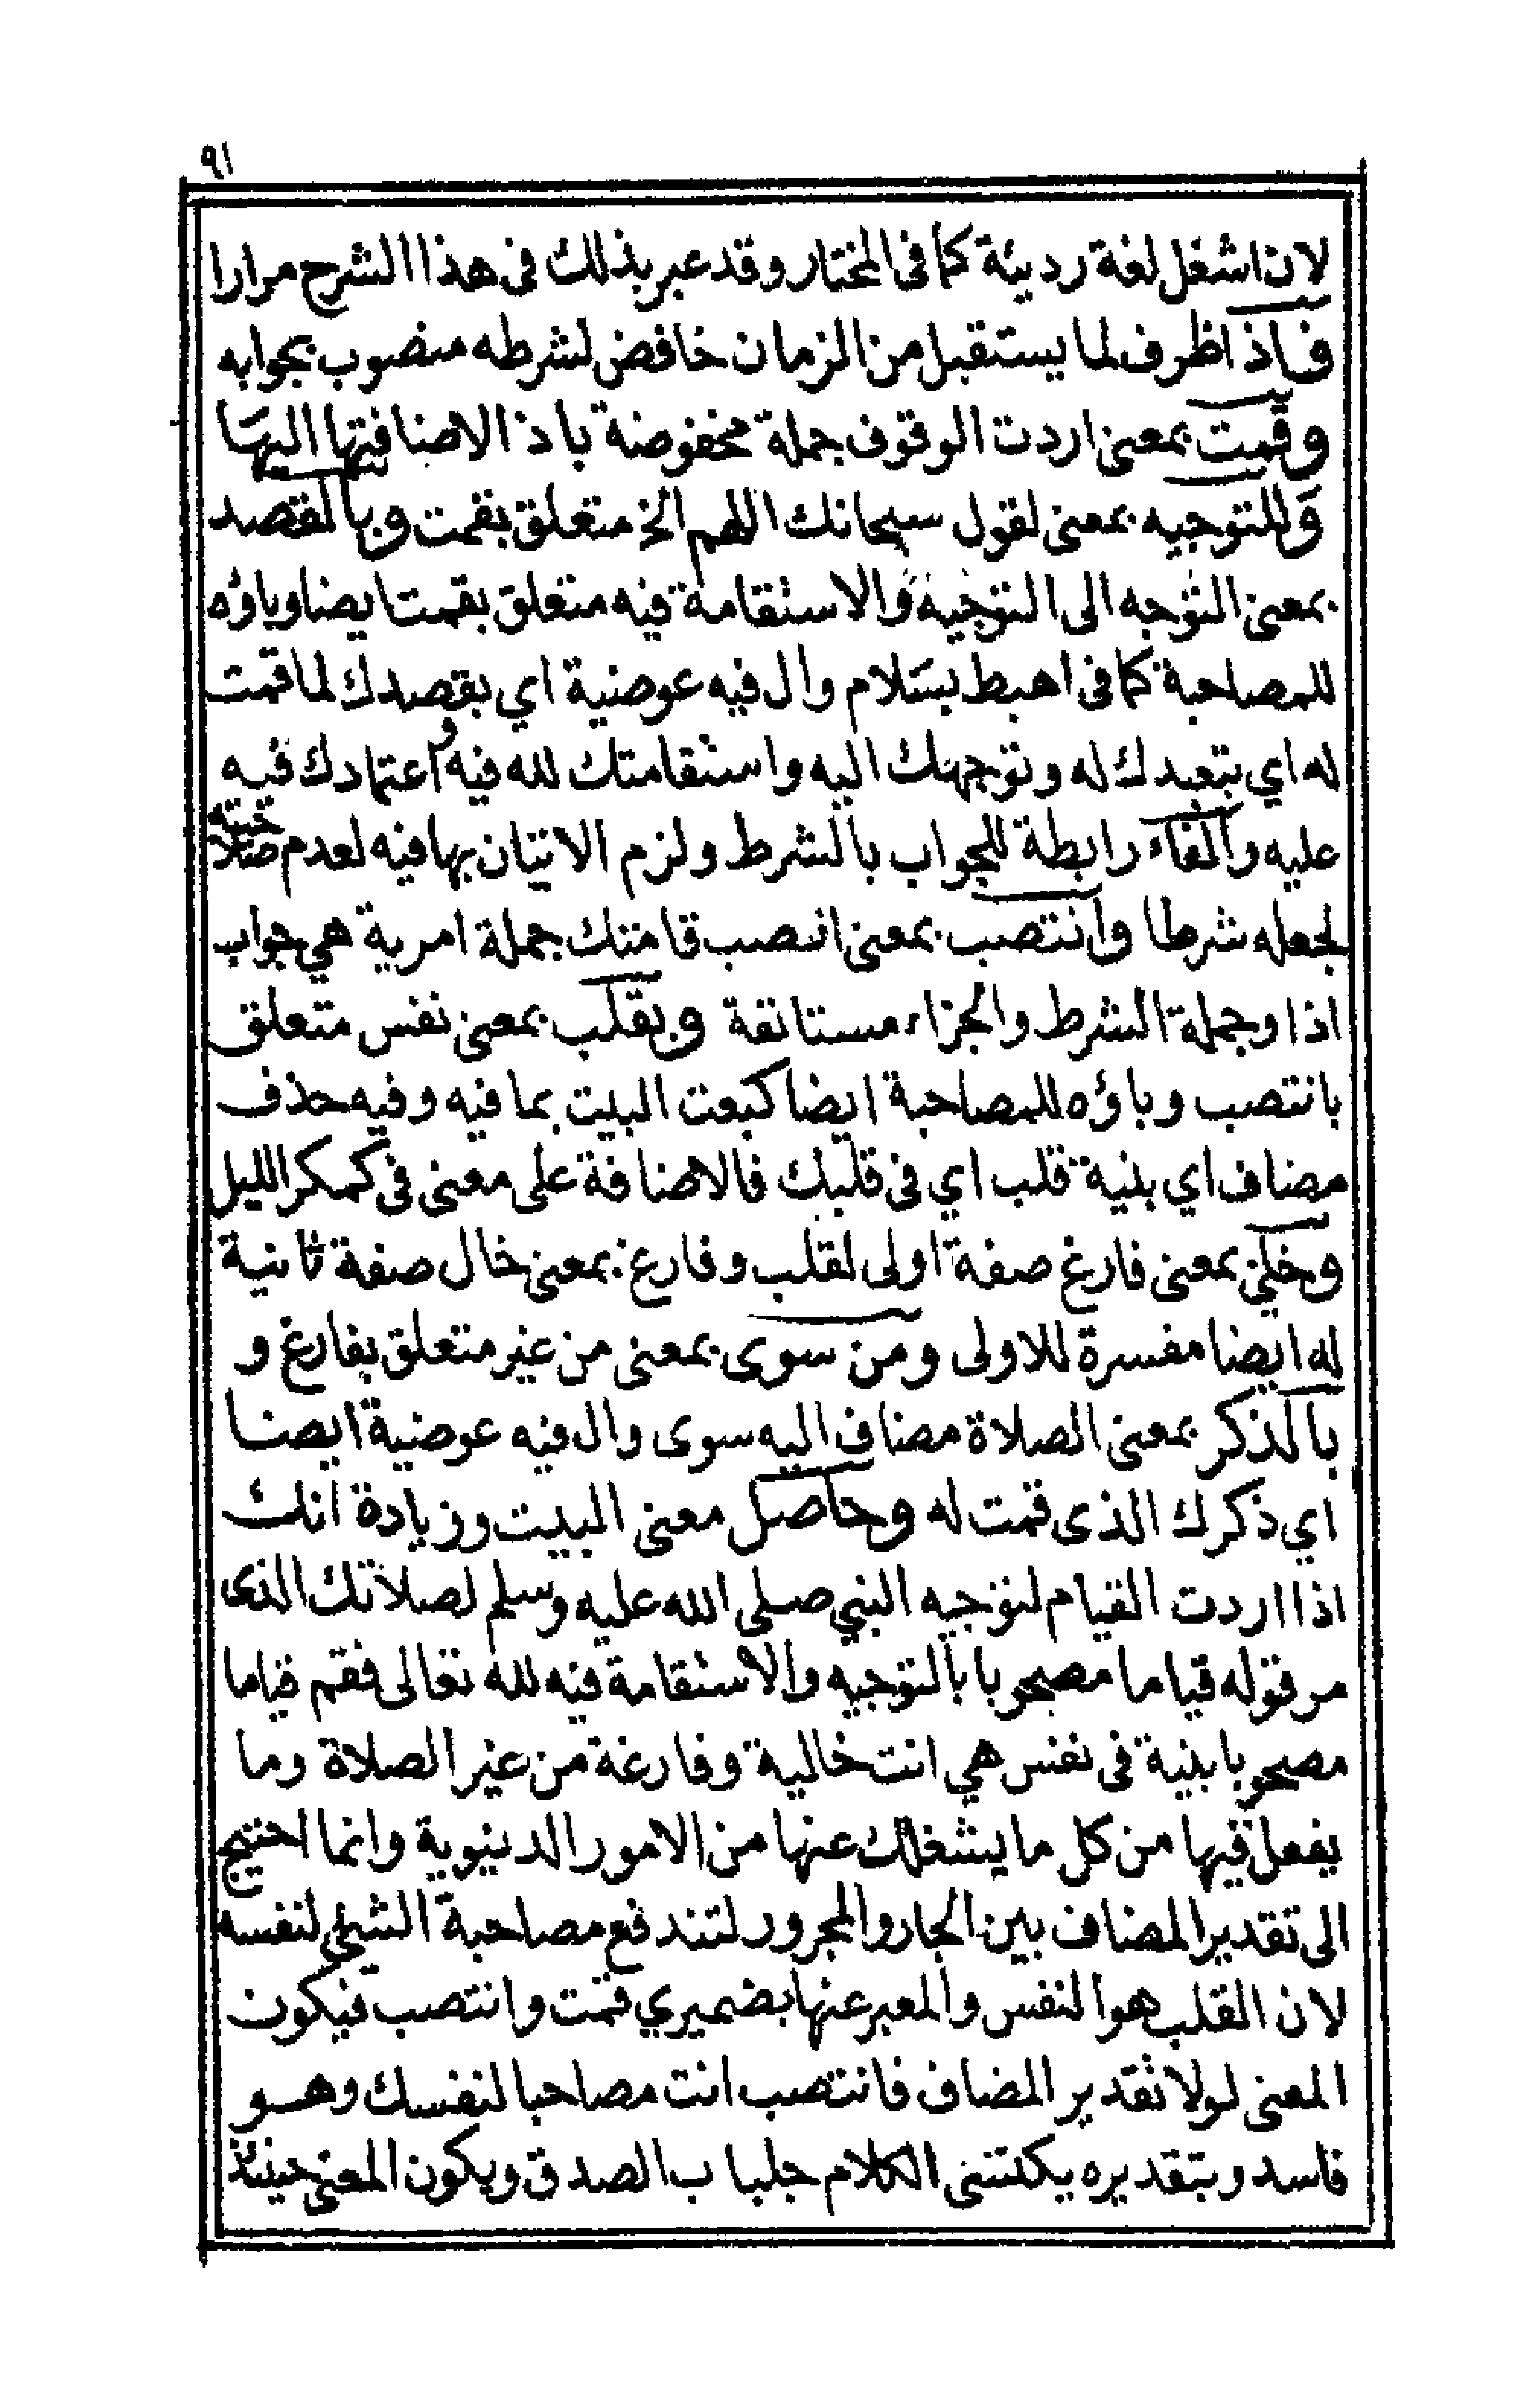 ٩١
لان اشغل لغة رديئة كما فى المختار وقد عبر بذلك فى هذا الشرح مرارا
فاذا ظرف لما يستقبل من الزمان خافض لشرطه منصوب بجوابه
وقمت بمعنى اردت الوقوف جملة مخفوضة باذا لاضافتها اليها
وللتوجيه بمعنى لقول سبحانك اللهم الخ متعلق بقمت وبالقصد
بمعنى التوجه الى التوجيه والاستقامة فيه متعلق بقمت ايضا وباؤه
للمصاحبة كما فى اهبط بسلام وال فيه عوضية اي بقصدك لما قمت
له اي بتعبدك له وتوجهك اليه واستقامتك لله فيه واعتمادك فيه
عليه والفاء رابطة للجواب بالشرط ولزم الاتيان بها فيه لعدم صلاحيته
لجعله شرطا وانتصب بمعنى انصب قامتك جملة امرية هي جواب
اذا وجملة الشرط والجزاء مستانفة وبقلب بمعنى نفس متعلق
بانتصب وباؤه للمصاحبة ايضا كبعت البيت بما فيه وفيه حذف
مضاف اي بنية قلب اي فى قلبك فالاضافة على معنى فى كمكر الليل
وخلي بمعنى فارغ صفة اولى لقلب وفارغ بمعنى خال صفة ثانية
له ايضا مفسرة للاولى ومن سوى بمعنى من غير متعلق بفارغ و
بالذكر بمعنى الصلاة مضاف اليه سوى وال فيه عوضية ايضا
اي ذكرك الذى قمت له وحاصل معنى البيت وزيادة انك
اذا اردت القيام لتوجيه النبي صلى الله عليه وسلم لصلاتك الذى
مر قوله قياما مصحوبا بالتوجيه والاستقامة فيه لله تعالى فقم قياما
مصحوبا بنية فى نفس هي انت خالية وفارغة من غير الصلاة وما
يفعل فيها من كل ما يشغلك عنها من الامور الدينوية وانما احتيج
الى تقدير المضاف بين الجار والمجرور لتندفع مصاحبة الشيئ لنفسه
لان القلب هو النفس والمعبر عنها بضميري قمت وانتصب فيكون
المعنى لولا تقدير المضاف فانتصب انت مصاحبا لنفسك وهو
فاسد وبتقديره يكتسى الكلام جلباب الصدق ويكون المعنى حينئذ